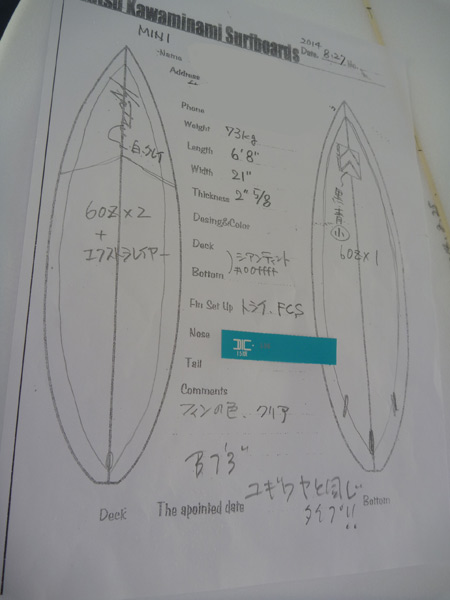 Kawaminami Surfboards
MINI
2014
Date. 8.27
Name
Address
Phone
Weight 73kg
Length 6'8"
Width 21"
Thickness 2" 5/8
Desing&Color
Deck
Bottom
シアンティント
#00ffff
Fin Set Up トライ. FCS
Nose
Tail
Comments
フィンの色. クリア
6oz×2
+
エクストラレイヤー
小
6oz×1
The apointed date
と同じ
タイプ!!
Deck
Bottom